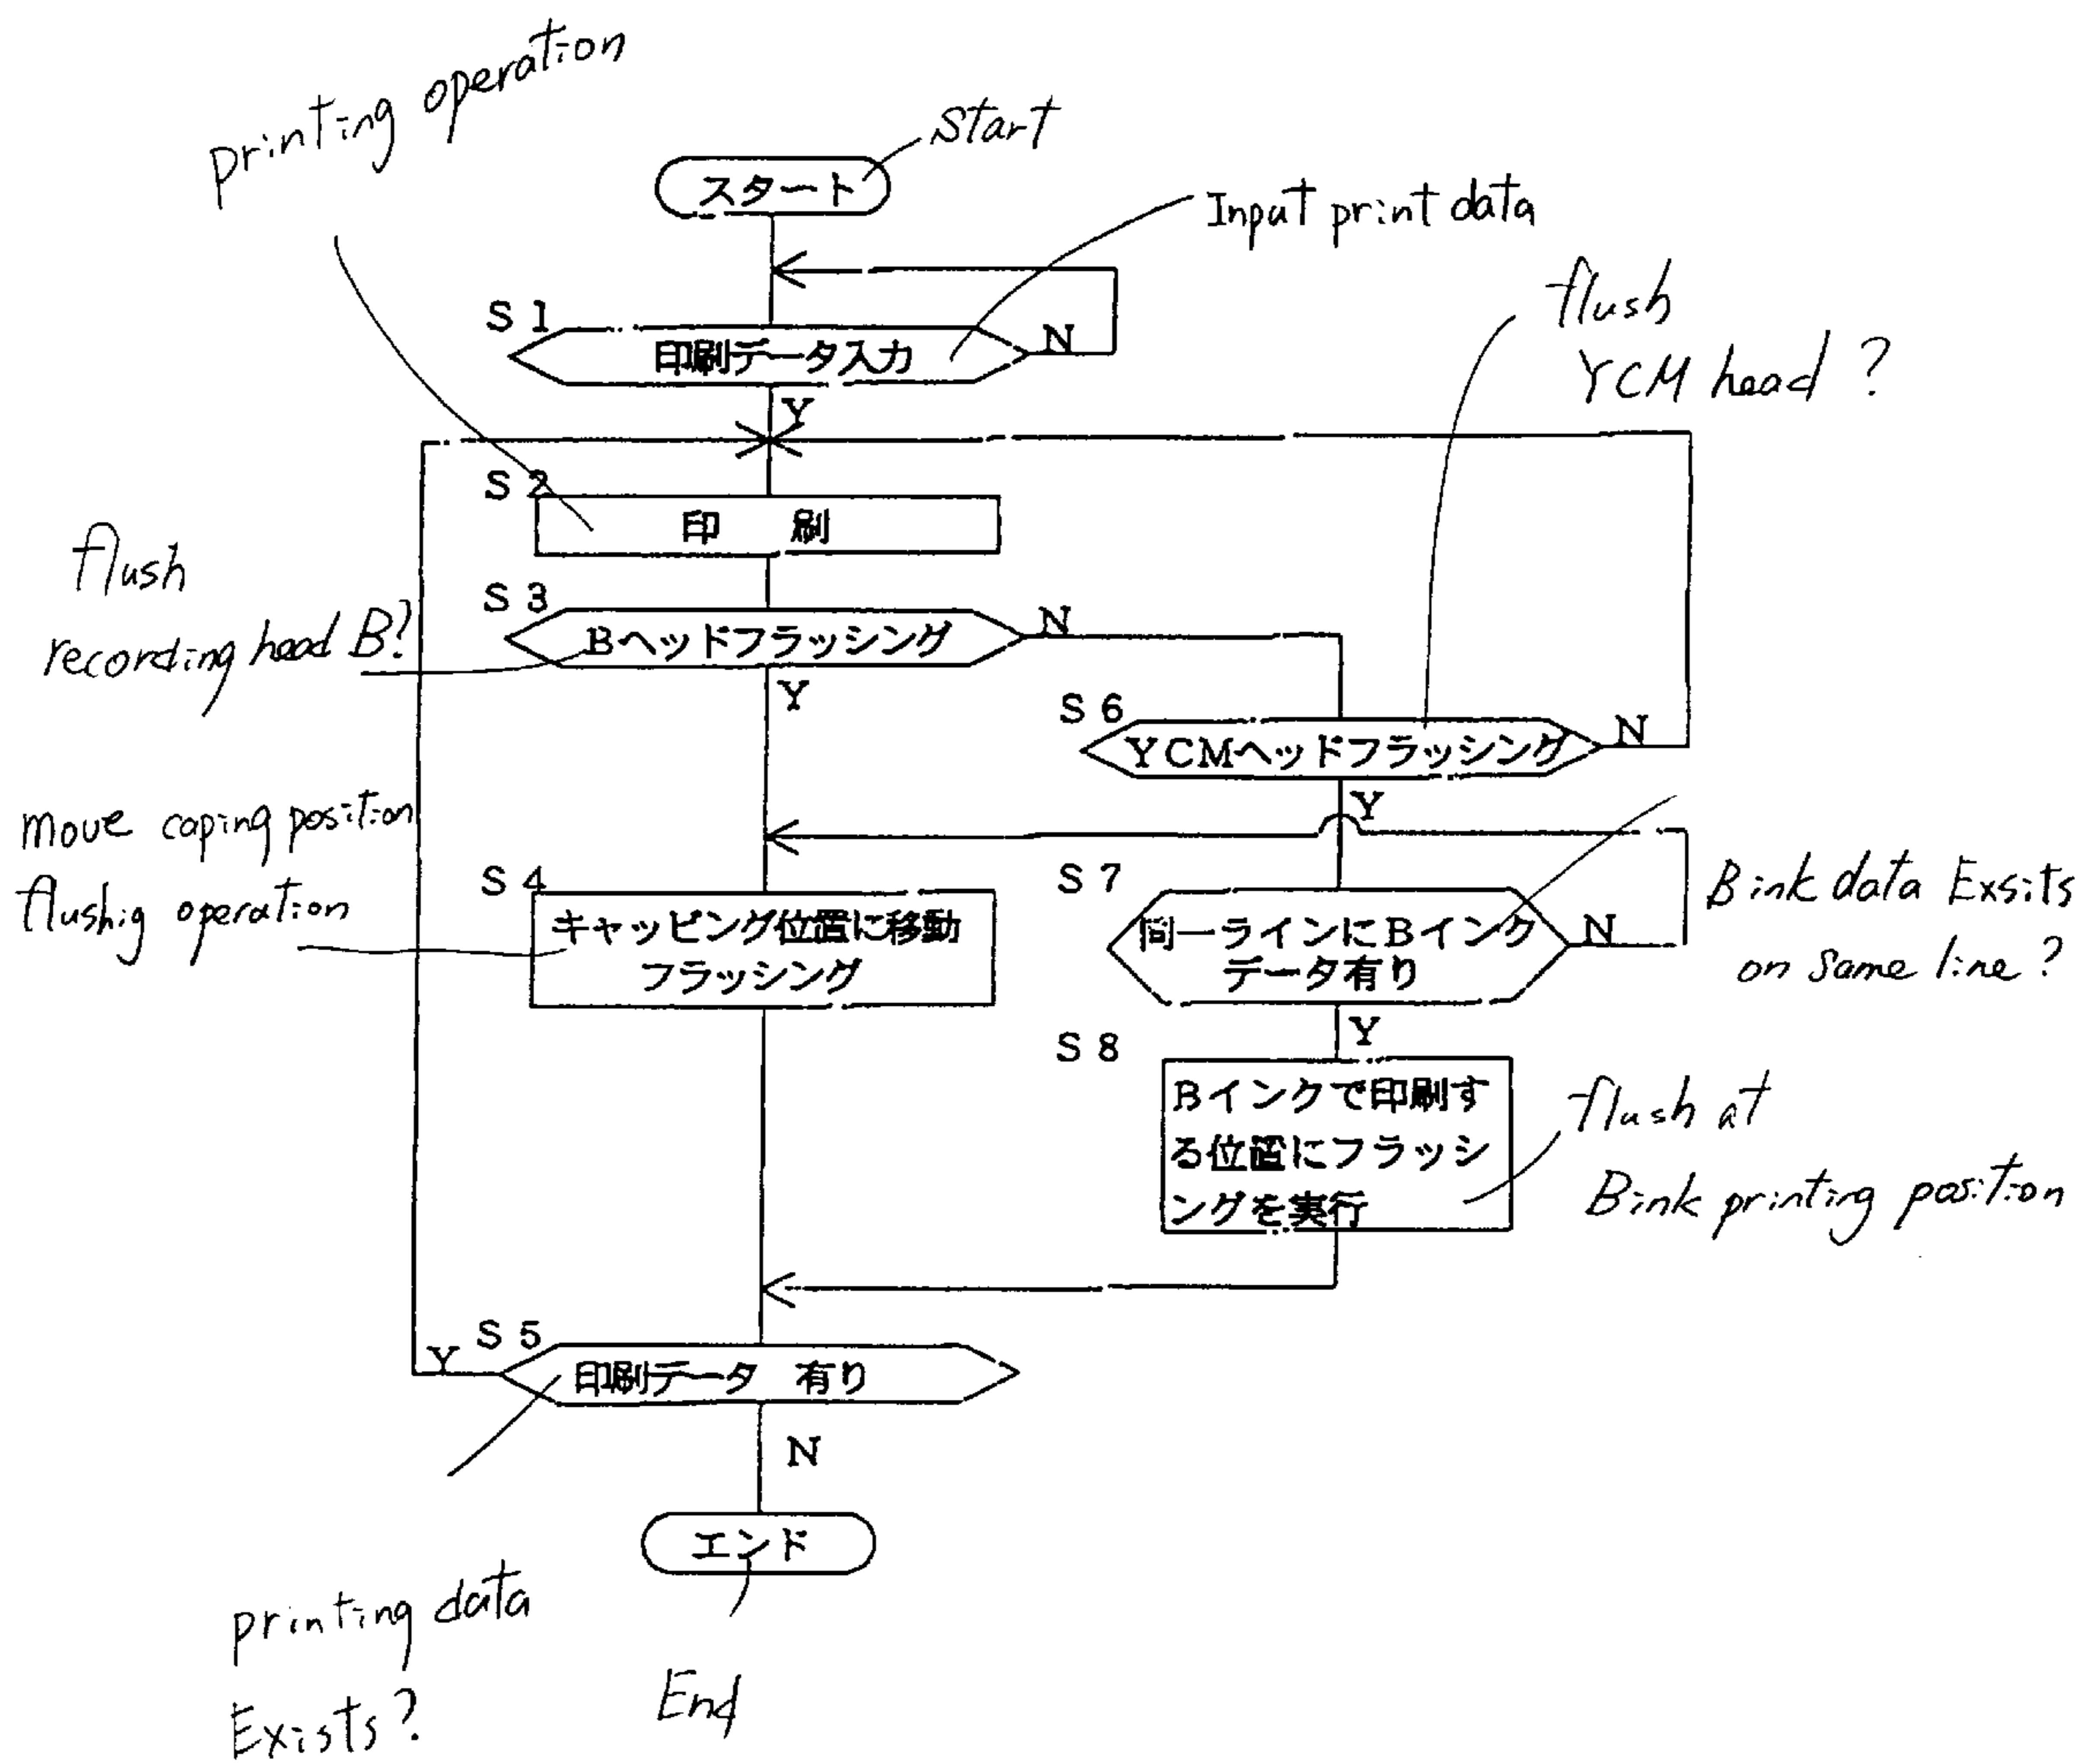 printing operation
Start
スタート
Input print data
S1
印刷データ入力
N
flush
YCM head ?
Y
S2
印 刷
flush
recording head B?
S3
Bヘッドフラッシング
N
Y
S6
YCMヘッドフラッシング
N
Y
move caping position
flushig operation
S4
キャッピング位置に移動
フラッシング
S7
同一ラインにBインク
データ有り
N
Bink data Exsits
on same line ?
Y
S8
Bインクで印刷す
る位置にフラッシ
ングを実行
flush at
Bink printing position
S5
Y
印刷データ 有り
N
エンド
printing data
Exists?
End